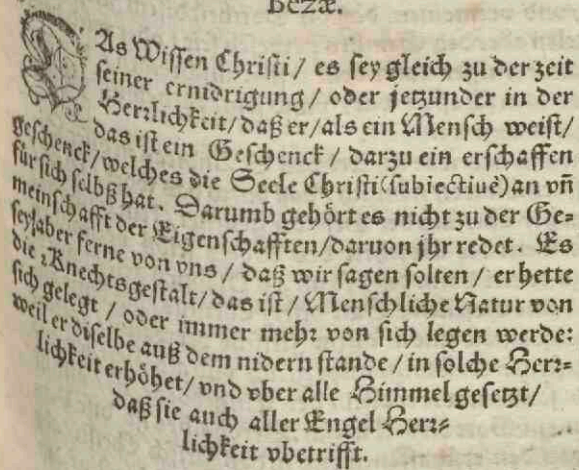 Bezæ.
DAs Wissen Christi / es sey gleich zu der zeit
seiner ernidrigung / oder jetzunder in der
Herrlichkeit / daß er / als ein Mensch weist /
das ist ein Geschenck / darzu ein erschaffen
geschenck / welches die Seele Christi (subiectiuè) an vñ
für sich selbß hat. Darumb gehört es nicht zu der Ge-
meinschafft der Eigenschafften / daruon jhr redet. Es
sey aber ferne von vns / daß wir sagen solten / er hette
die Knechtsgestalt / das ist / Menschliche Natur von
sich gelegt / oder immer mehr von sich legen werde:
weil er diselbe auß dem nidern stande / in solche Herr-
lichkeit erhöhet / vnd vber alle Himmel gesetzt /
daß sie auch aller Engel Herr-
lichkeit vbetrifft.